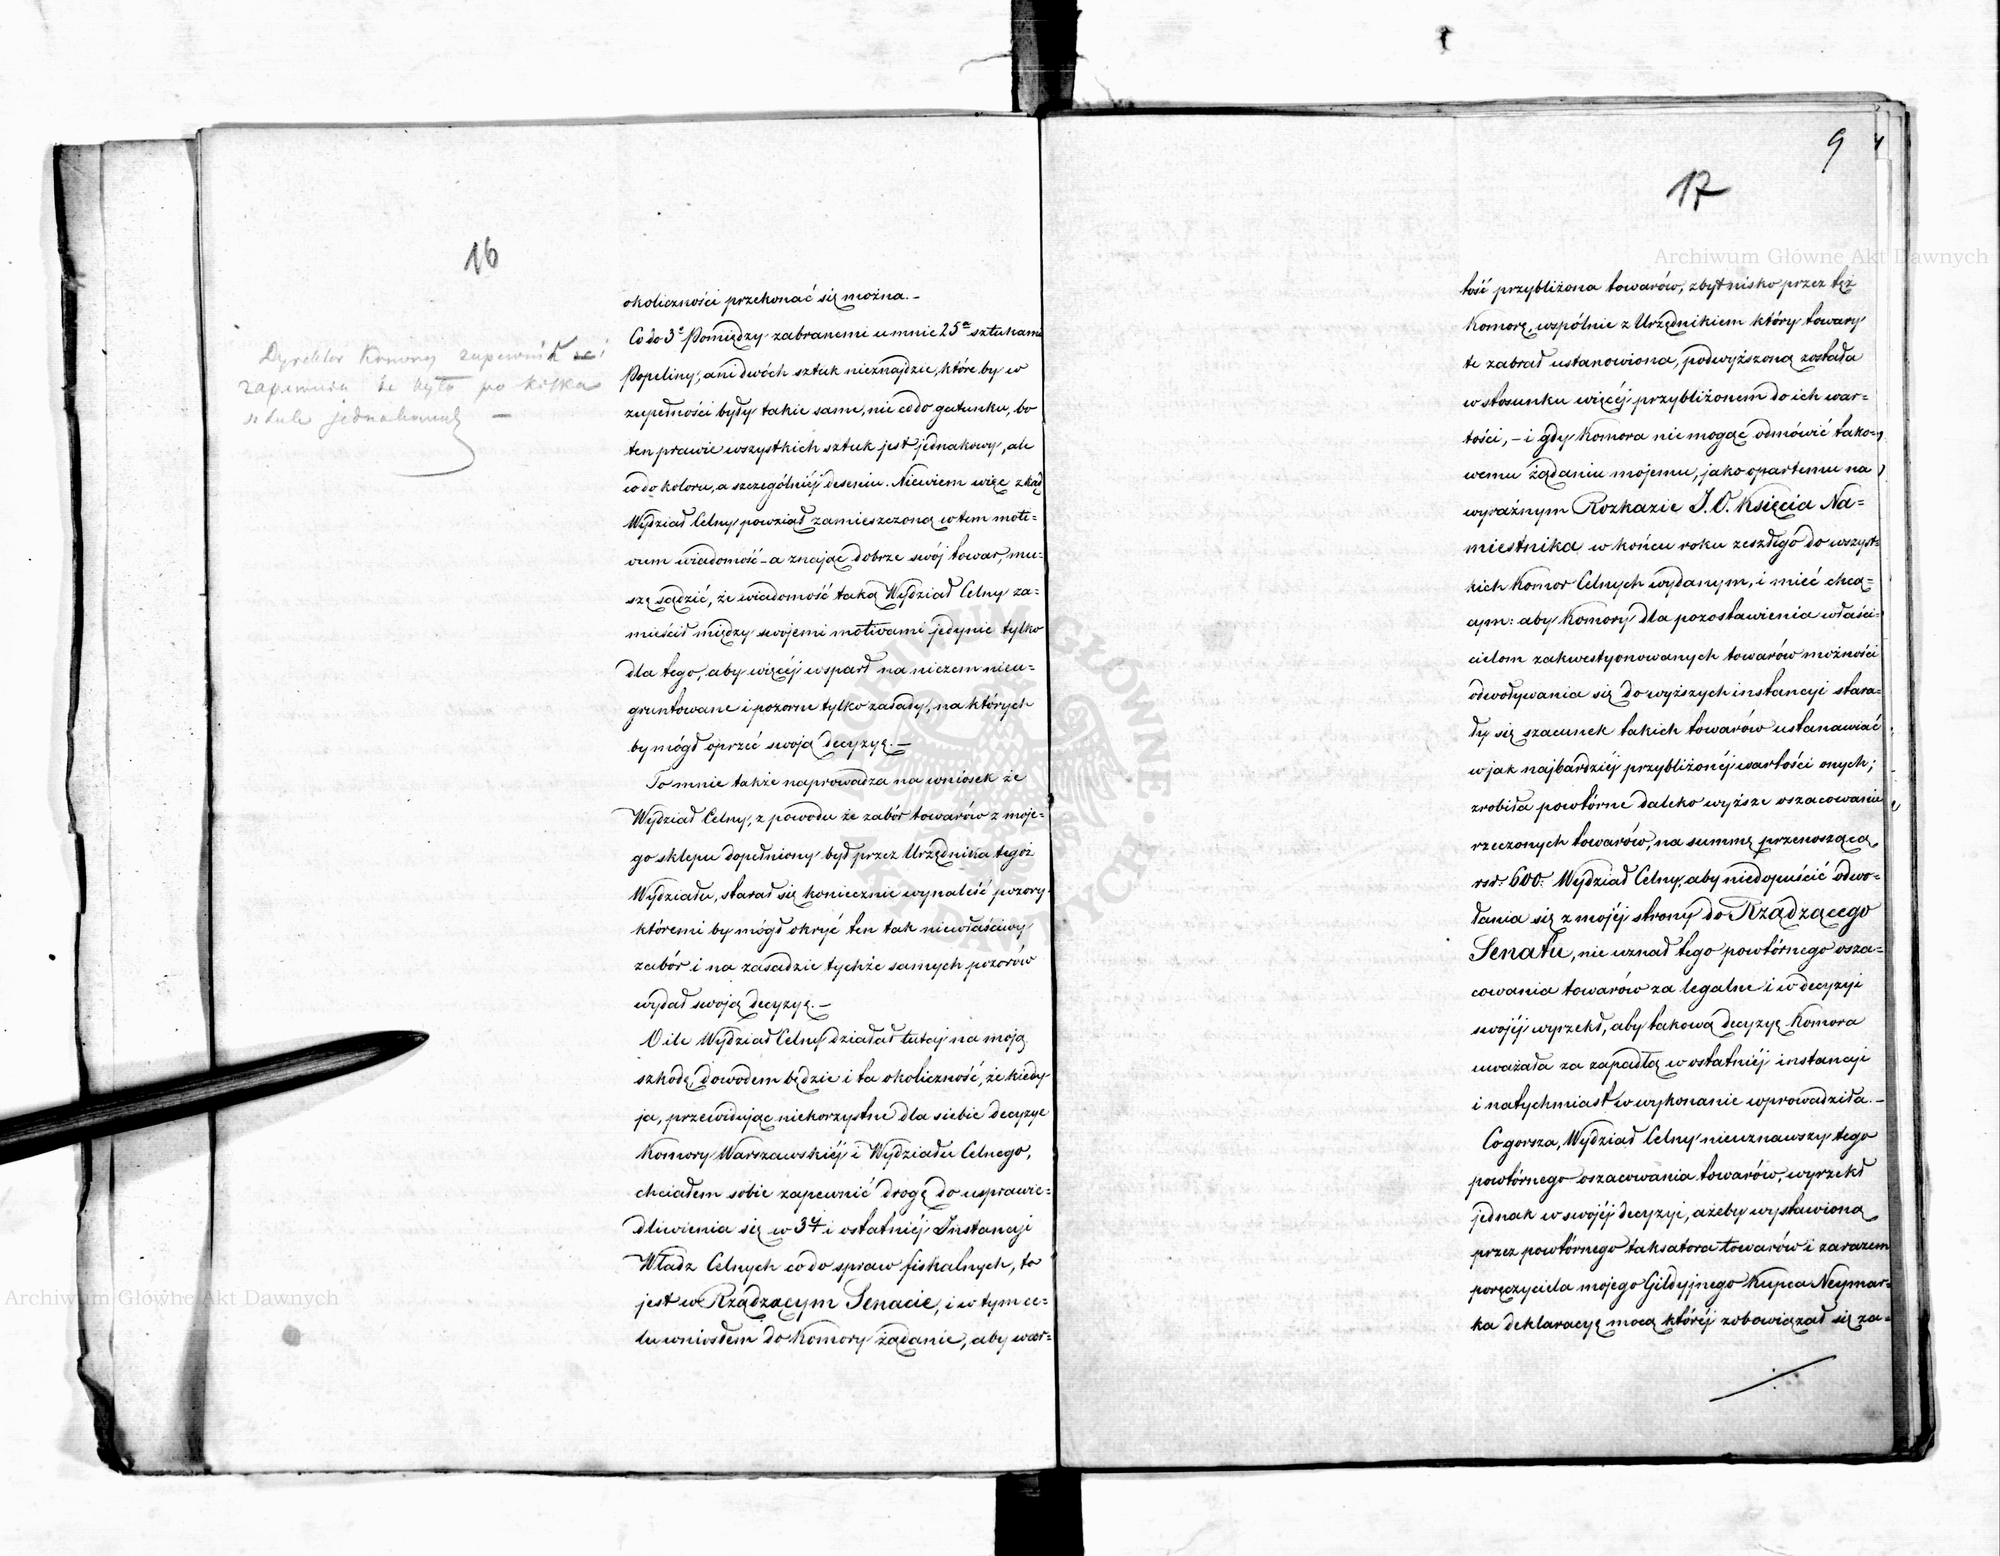 16
Dyrektor Komory zapewnił
zapewnia że było po kilka
sztuk jednakowych —
okoliczności przekonać się można. –
Co do 3º Pomiędzy zabranemi u mnie 25ª sztukami
Popeliny, ani dwóch sztuk nieznajdzie, które by w
zupełności były takie same, nie co do gatunku, bo
ten prawie wszystkich sztuk jest jednakowy, ale
co do koloru, a szczególniej deseniu. Niewiem więc zkąd
Wydział Celny powziął zamieszczoną w tem moti-
vum wiadomość – a znając dobrze swój towar, mu-
szę sądzić, że wiadomość taką Wydział Celny za-
mieścił między swojemi motivami jedynie tylko
dla tego, aby więcéj wsparł na niczem nieu-
gruntowane i pozorne tylko zasady, na których
by mógł oprzeć swoją decyzyę. –
To mnie także naprowadza na wniosek że
Wydział Celny, z powodu że zabór towarów z moje-
go sklepu dopełniony był przez Urzędnika tegoż
Wydziału, starał się koniecznie wynaleść pozory
któremi by mógł okryć ten tak niewłaściwy
zabór i na zasadzie tychże samych pozorów
wydał swoją decyzyę. –
O ile Wydział Celny działał tutaj na moją
szkodę, dowodem będzie i ta okoliczność, że kiedy
ja, przewidując niekorzystne dla siebie decyzye
Komory Warszawskiéj i Wydziału Celnego,
chciałem sobie zapewnić drogę do usprawie-
dliwienia się w 3éj i ostatniéj Instancyi
Władz Celnych co do spraw fiskalnych, to
jest w Rządzącym Senacie, i w tym ce-
lu wniosłem do Komory żądanie, aby war-
9
17
tość przybliżona towarów, zbyt nisko przez też
Komorę, wspólnie z Urzędnikiem który towary
te zabrał ustanowiona, podwyższoną została
w stosunku więcéj przybliżonem do ich war-
tości, – i gdy Komora nie mogąc odmówić tako-
wemu żądaniu mojemu, jako opartemu na
wyraźnym Rozkazie J. O. Księcia Na-
miestnika w końcu roku zeszłego do wszyst-
kich Komor Celnych wydanym, i mieć chcą-
cym: aby Komory dla pozostawienia właści-
cielom zakwestyonowanych towarów możności
odwoływania się do wyższych instancyi stara-
ły się szacunek takich towarów ustanawiać
w jak najbardziéj przybliżonéj wartości onych;
zrobiła powtórne daleko wyższe oszacowanie
rzeczonych towarów, na summę przenoszącą
rsr: 600: Wydział Celny, aby niedopuścić odwo-
łania się z mojéj strony do Rządzącego
Senatu, nie uznał tego powtórnego osza-
cowania towarów za legalne i w decyzyi
swojéj wyrzekł, aby takową decyzyę Komora
uważała za zapadłą w ostatniéj instancyi
i natychmiast w wykonanie wprowadziła. –
Co gorsza, Wydział Celny nieuznawszy tego
powtórnego oszacowania towarów, wyrzekł
jednak w swojéj decyzyi, ażeby wystawioną
przez powtórnego taksatora towarów i zarazem
poręczyciela mojego Gildyjnego Kupca Neymar-
ka deklaracyę mocą któréj zobowiązał się za-
Archiwum Główne Akt Dawnych
Archiwum Główne Akt Dawnych
ARCHIWUM GŁÓWNE AKT DAWNYCH